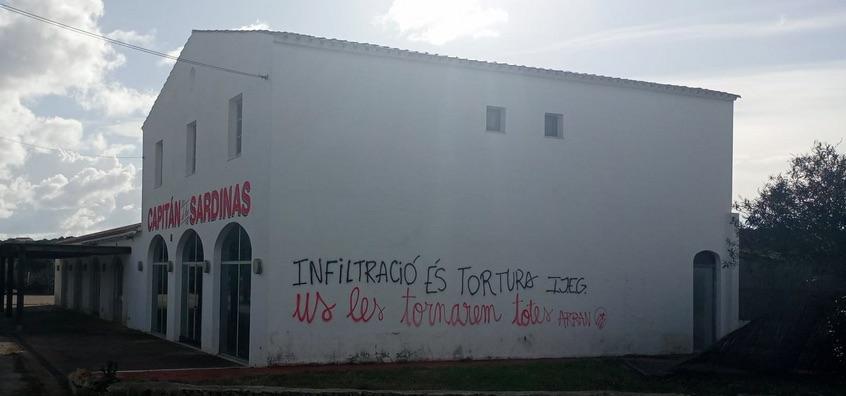 CAPITÁN SARDINAS
INFILTRACIÓ ÉS TORTURA IJEG.
US LES tornarem totes ARRAN